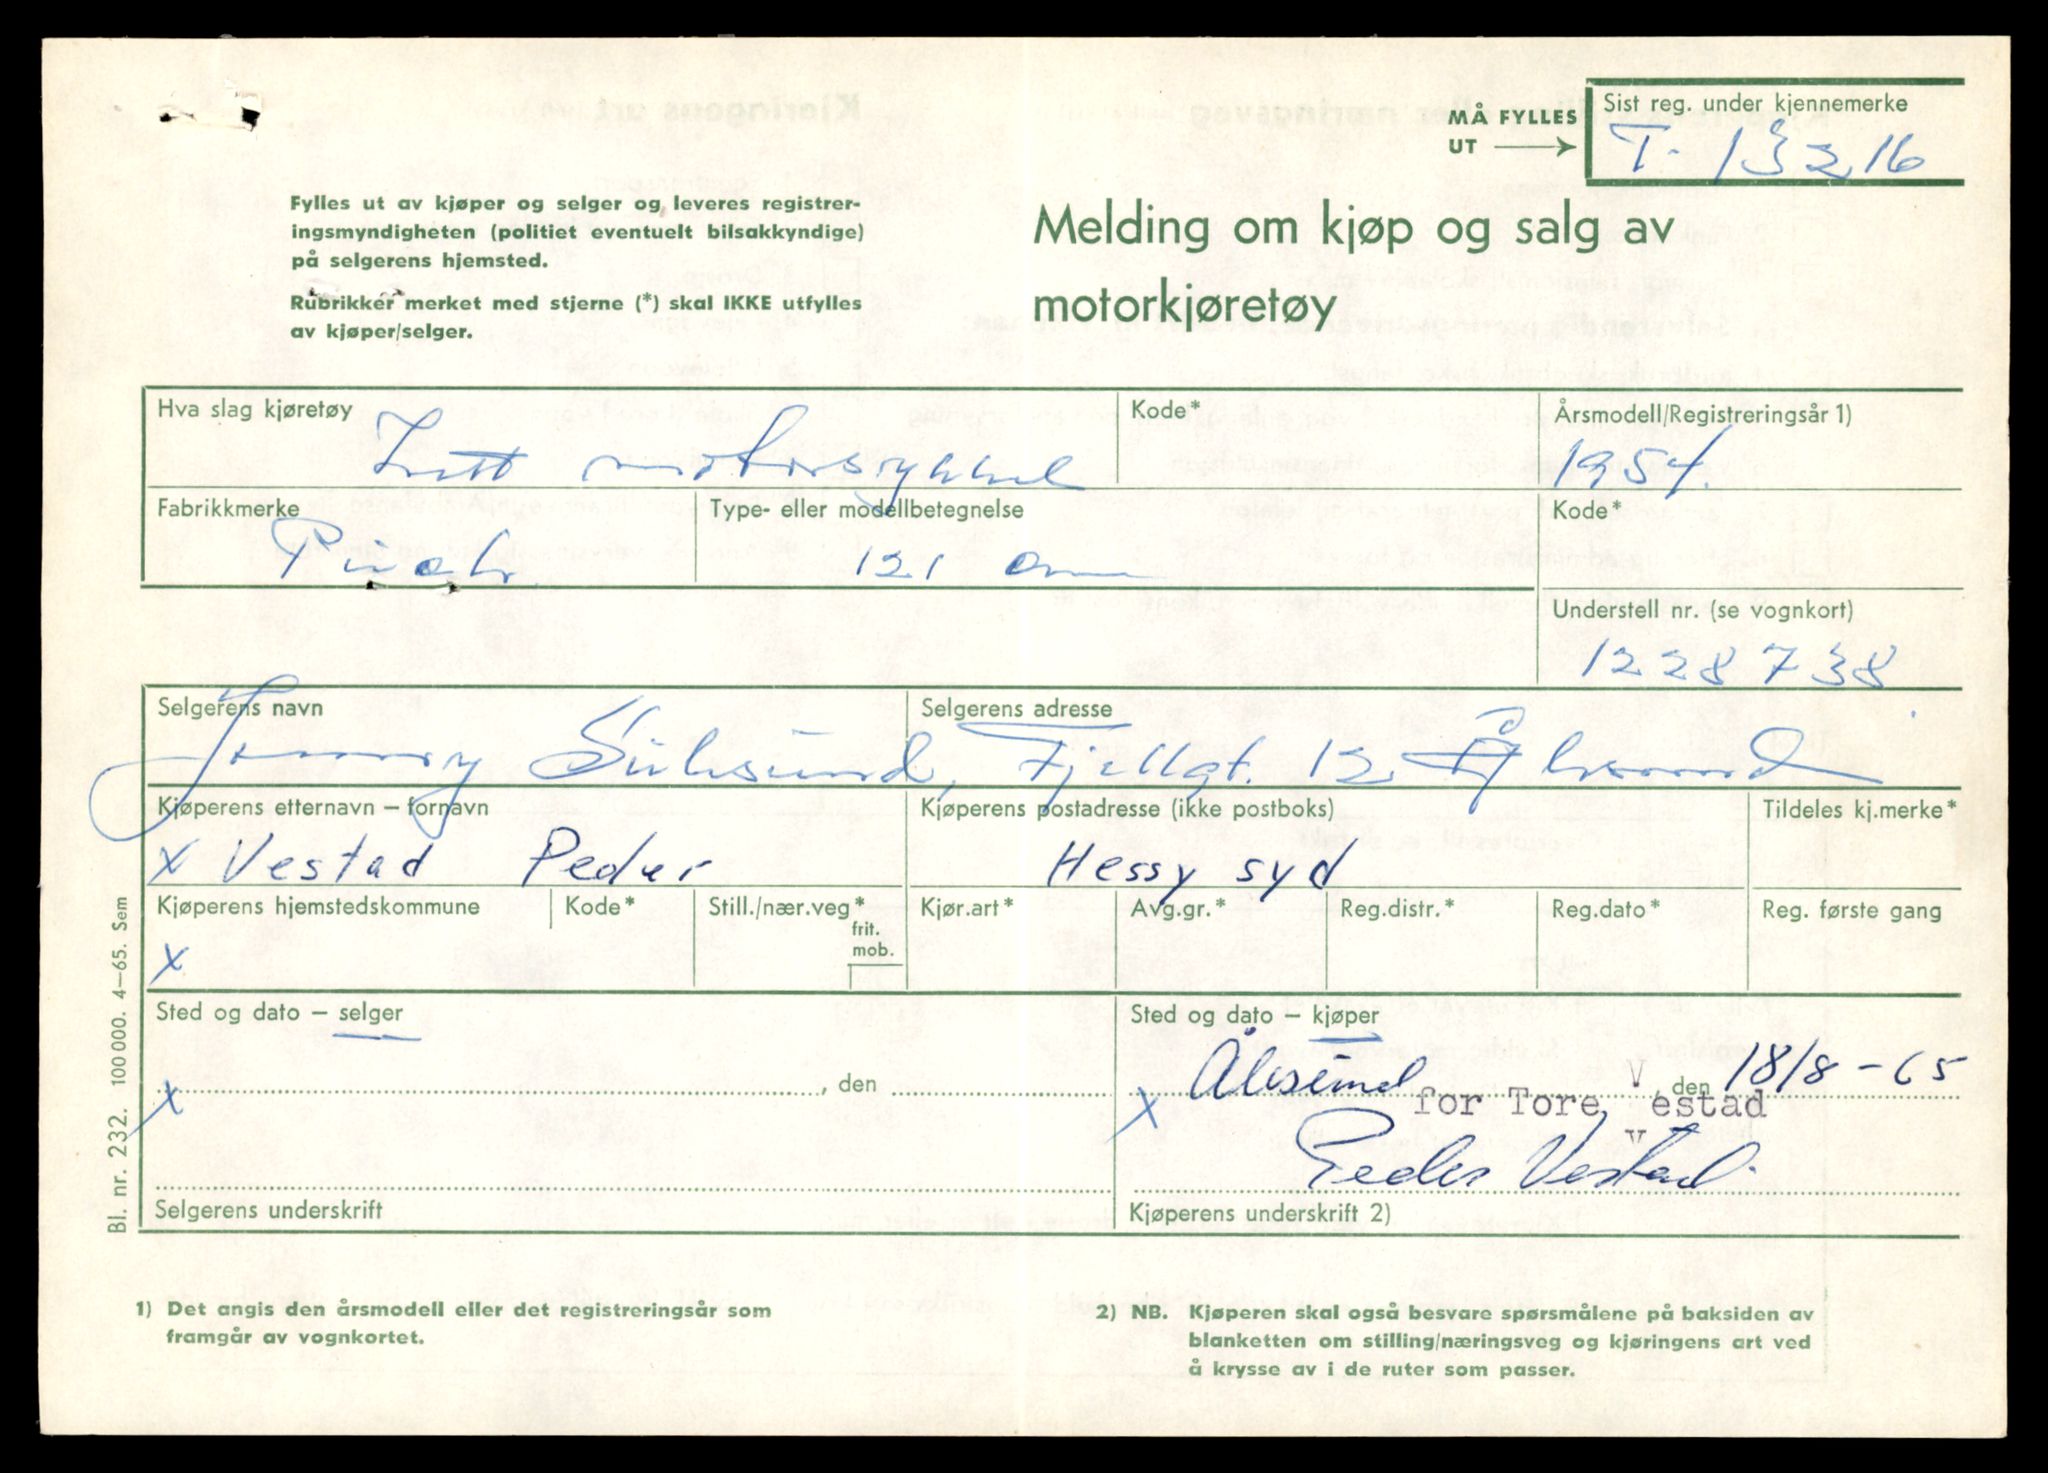 MÅ FYLLES UT
Sist reg. under kjennemerke
T- 13216
Fylles ut av kjøper og selger og leveres registrer-
ingsmyndigheten (politiet eventuelt bilsakkyndige)
på selgerens hjemsted.
Rubrikker merket med stjerne (*) skal IKKE utfylles
av kjøper/selger.
Melding om kjøp og salg av
motorkjøretøy
Hva slag kjøretøy
Kode*
Årsmodell/Registreringsår 1)
Lett motorsykkel
1954.
Fabrikkmerke
Type- eller modellbetegnelse
Kode*
Puch.
121
Understell nr. (se vognkort)
1228738
Selgerens navn
Selgerens adresse
Fjellgt. 12 Ålesund
Kjøperens etternavn – fornavn
Kjøperens postadresse (ikke postboks)
Tildeles kj.merke*
x Vestad Peder
Hessy syd
Kjøperens hjemstedskommune
Kode*
Still./nær.veg*
frit.
mob.
Kjør.art*
Avg.gr.*
Reg.distr.*
Reg.dato*
Reg. første gang
x
Sted og dato – selger
Sted og dato – kjøper
x , den
x Ålesund , den 18/8-65
for Tore Vestad
Peder Vestad
Selgerens underskrift
Kjøperens underskrift 2)
Bl. nr. 232. 100 000. 4–65. Sem
1) Det angis den årsmodell eller det registreringsår som
framgår av vognkortet.
2) NB. Kjøperen skal også besvare spørsmålene på baksiden av
blanketten om stilling/næringsveg og kjøringens art ved
å krysse av i de ruter som passer.